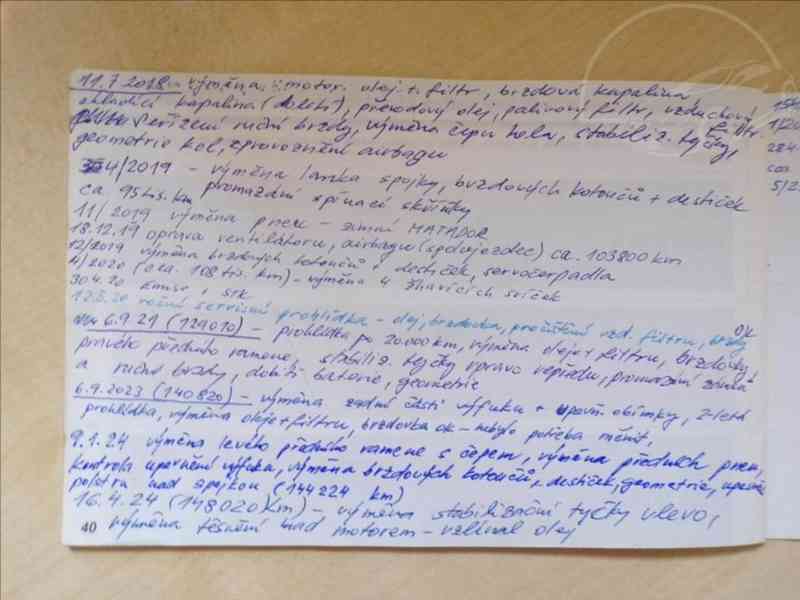 11.7.2018 - výměna: motor. olej + filtr, brzdová kapalina
chladící kapalina (dolití), převodový olej, palivový filtr, vzduchový
filtr seřízení ruční brzdy, výměna čepu kola, stabiliz. tyčky,
geometrie kol, zprovoznění airbagu
4/2019 - výměna lanka spojky, brzdových kotoučů + destiček
ca. 95 tis. km promazání spínací skříňky
11/2019 výměna pneu - zimní MATADOR
18.12.19 oprava ventilátoru, airbagu (spolujezdec) ca. 103800 km
12/2019 výměna brzdových kotoučů + destiček, servočerpadla
4/2020 (cca. 108 tis. km) - výměna 4 žhavících svíček
30.4.20 emise + STK
12.5.20 roční servisní prohlídka - olej, brzdovka, pročištění vzd. filtru, brzdy
OK
6.9.21 (129010) - prohlídka po 20.000 km, výměna oleje + filtru, brzdovky
pravého předního ramene, stabiliz. tyčky vpravo vepředu, promazání zámků
a ruční brzdy, dobití baterie, geometrie
6.9.2023 (140820) - výměna zadní části výfuku + upevň. objímky, 2-letá
prohlídka, výměna oleje + filtru, brzdovka ok - nebylo potřeba měnit,
9.1.24 výměna levého předního ramene s čepem, výměna předních pneu,
kontrola upevnění výfuku, výměna brzdových kotoučů, destiček, geometrie,
nad spojkou (144224 km)
16.4.24 (148020 km) - výměna stabilizační tyčky vlevo,
40 výměna těsnění nad motorem - vzlínal olej